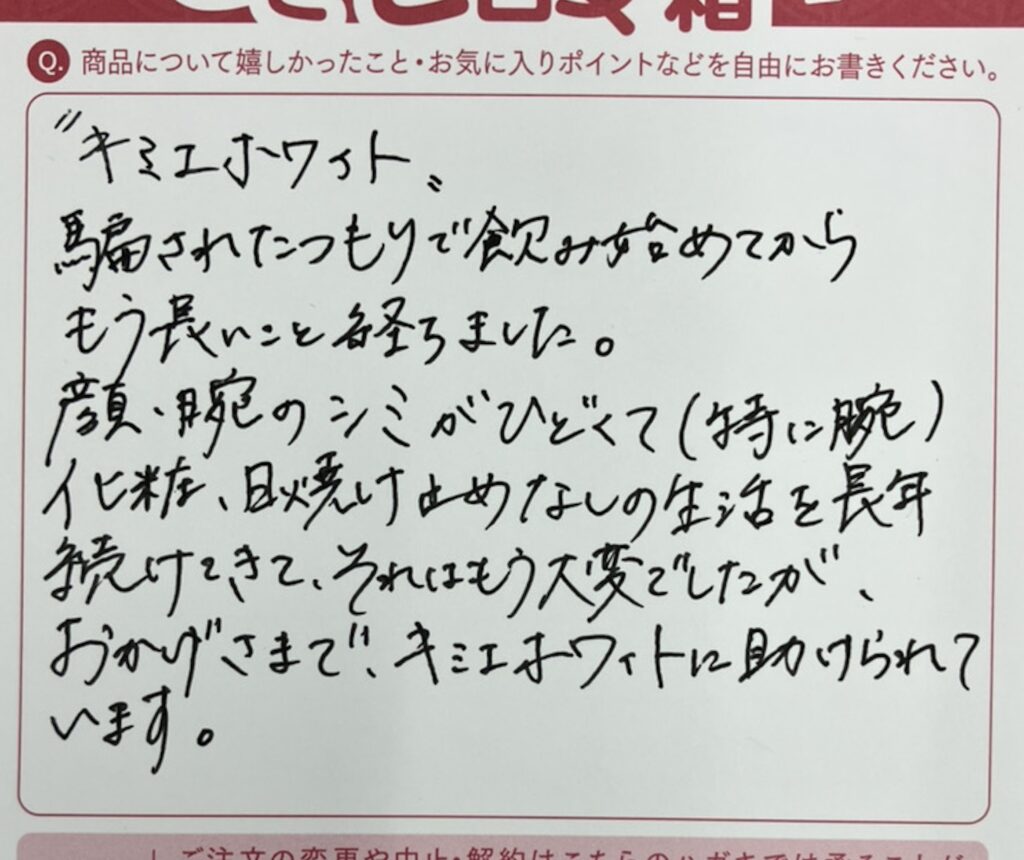 Q. 商品について嬉しかったこと・お気に入りポイントなどを自由にお書きください。
〝キミエホワイト〟
騙されたつもりで飲み始めてから
もう長いこと経ちました。
顔、腕のシミがひどくて(特に腕)
化粧、日焼け止めなしの生活を長年
続けてきて、それはもう大変でしたが、
おかげさまで、キミエホワイトに助けられて
います。